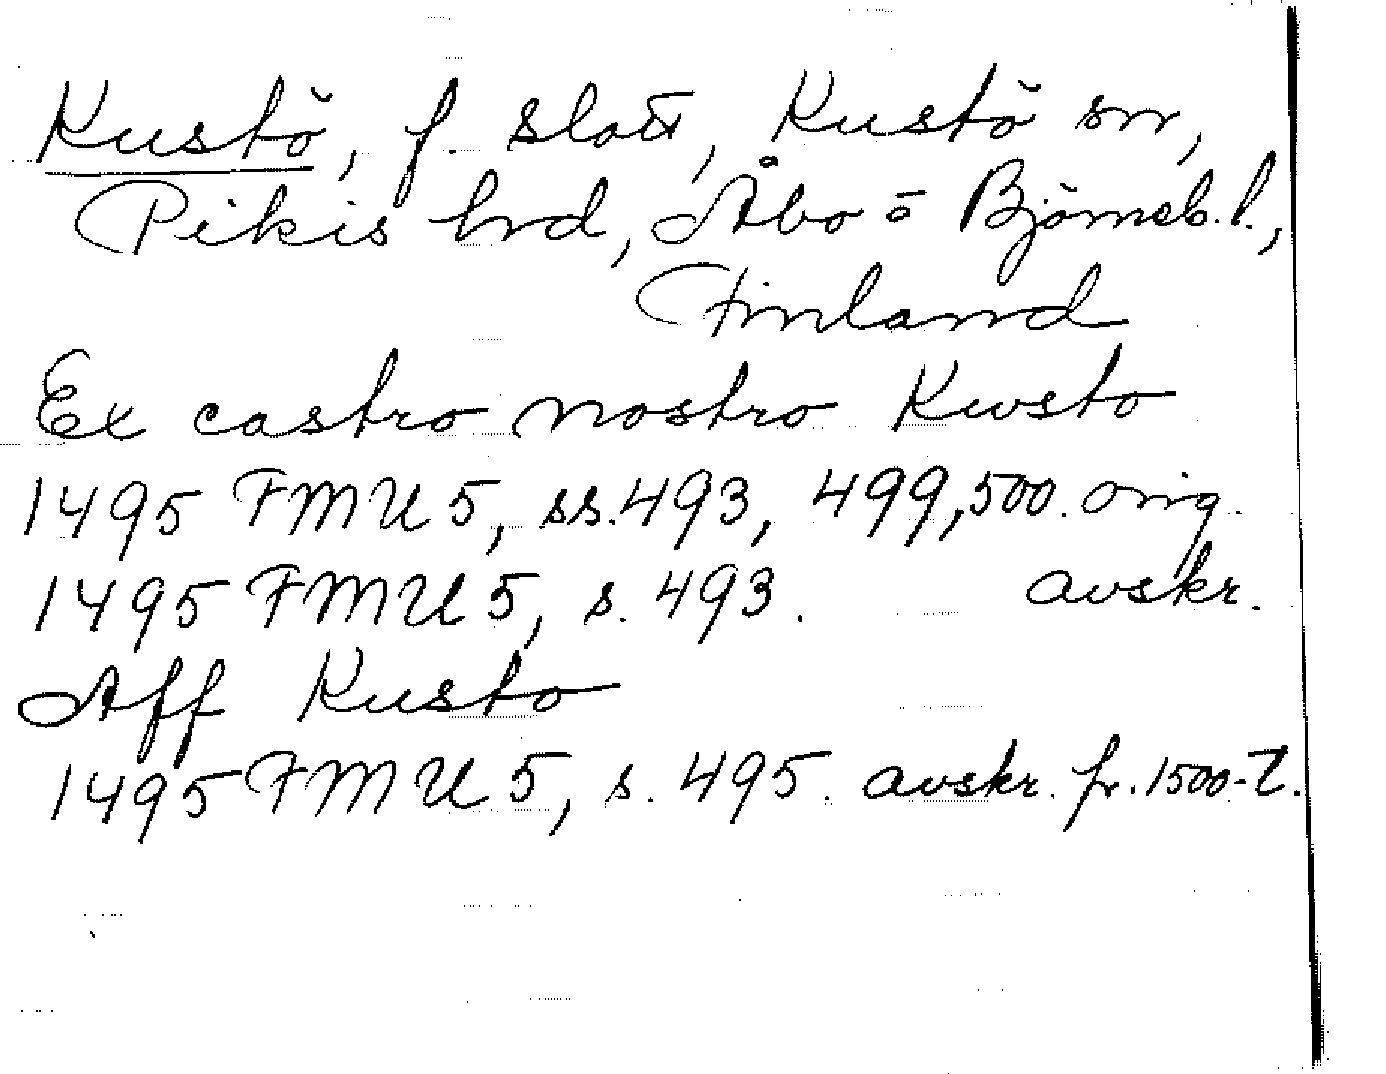 Kustö, f. slott, Kustö sn,
Pikis hrd, Åbo = Björneb. l.,
Finland
Ex castro nostro Kwsto
1495 FMU 5, ss. 493, 499, 500. orig.
1495 FMU 5, s. 493. avskr.
Aff Kusto
1495 FMU 5, s. 495. avskr. fr. 1500-t.